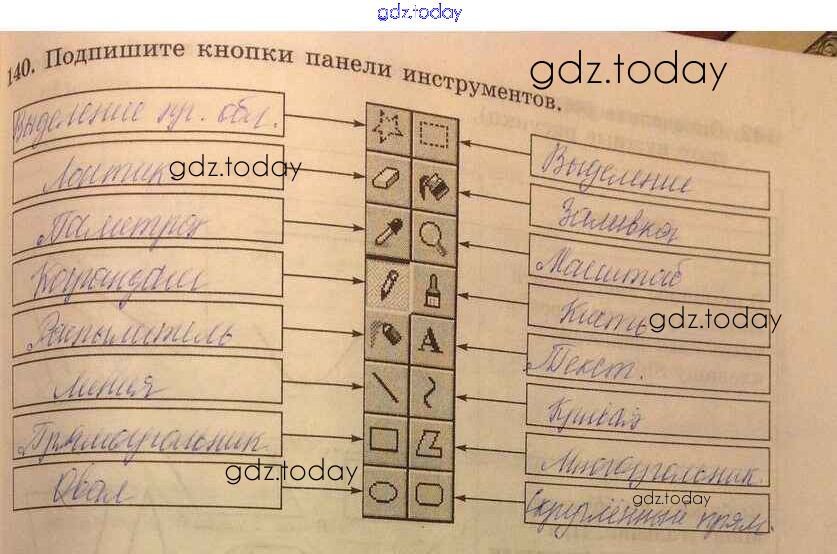 gdz.today
140. Подпишите кнопки панели инструментов.
gdz.today
Выделение пр. обл.
Ластик
gdz.today
Палитра
Карандаш
Распылитель
Линия
Прямоугольник
Овал
gdz.today
Выделение
Заливка
Масштаб
Кисть
gdz.today
Текст.
Кривая
Многоугольник
Скруглённый прям.
gdz.today
A